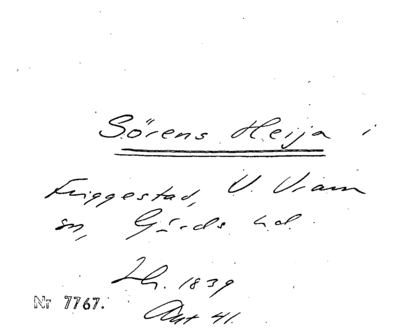 Sörens Heija i
Friggestad, V. Vram
sn, Gärds hd.
Ih. 1839
Akt 41.
Nr 7767.